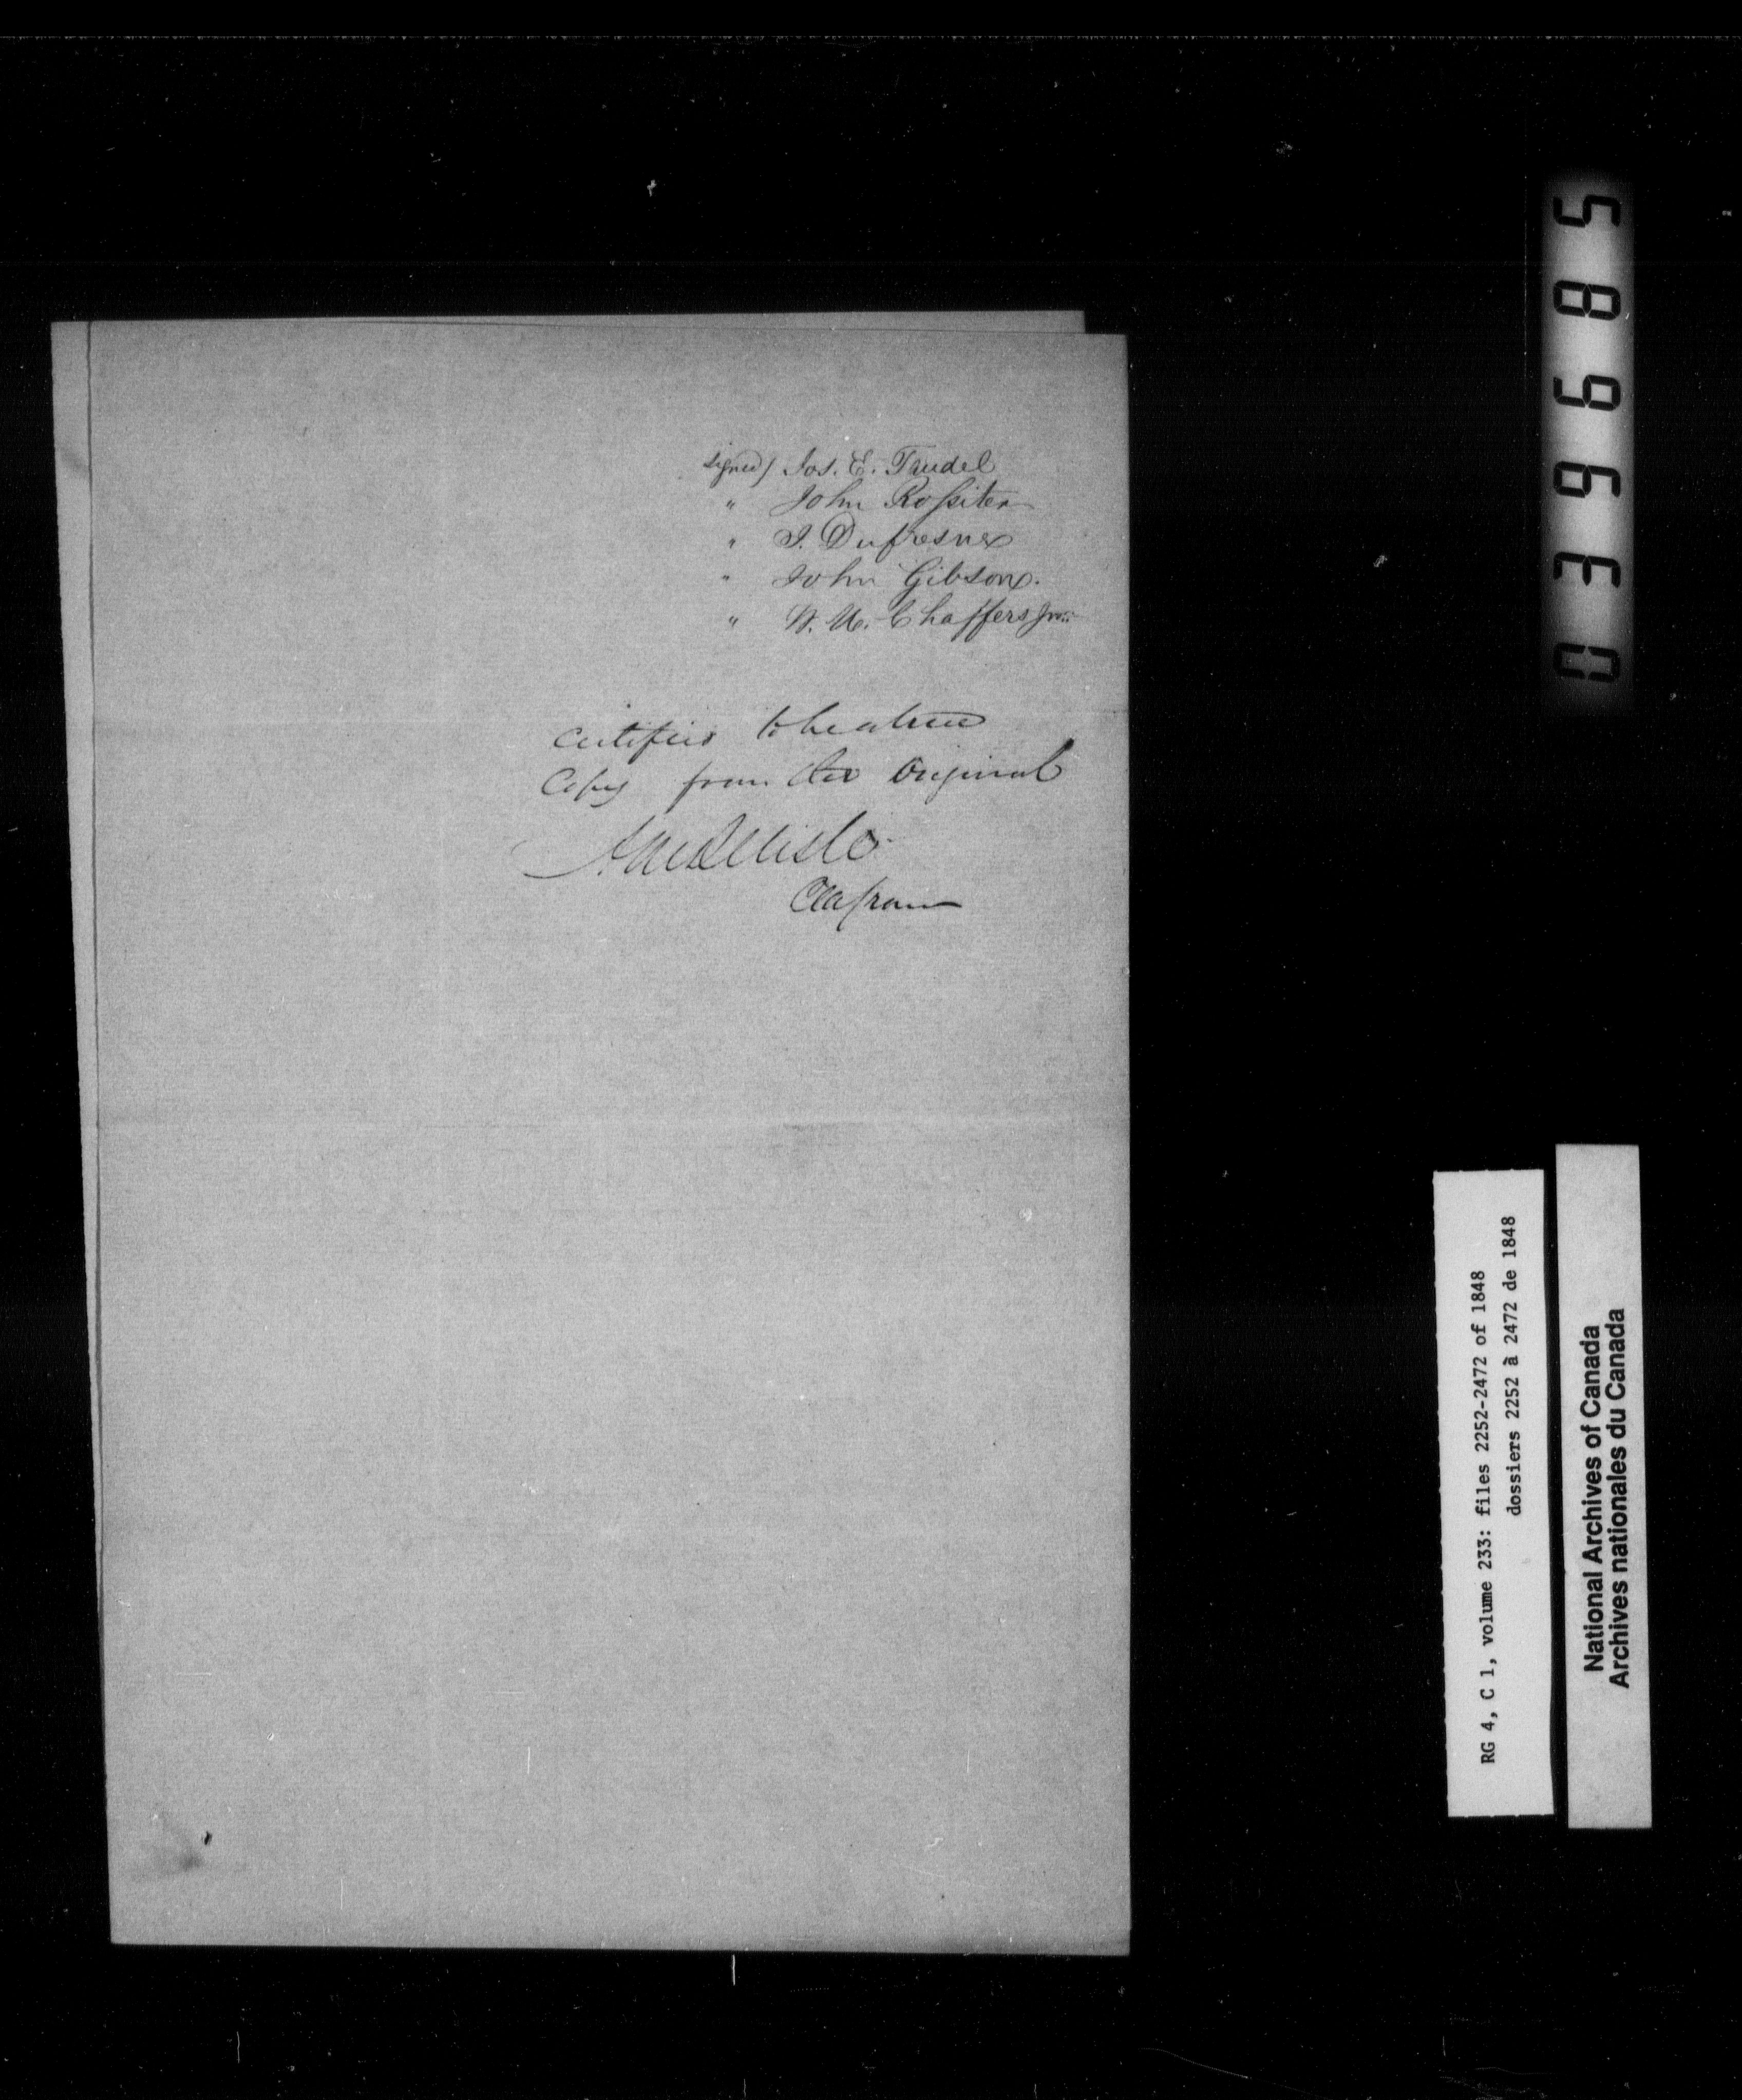 signed) Jos. E. Trudel
" John Rossiter
" J. Dufresne
" John Gibson.
" W. U. Chaffers Jnr.
Certified to be a true
Copy from the Original
A. M. Delisle
039685
RG 4, C 1, volume 233: files 2252-2472 of 1848
dossiers 2252 à 2472 de 1848
National Archives of Canada
Archives nationales du Canada